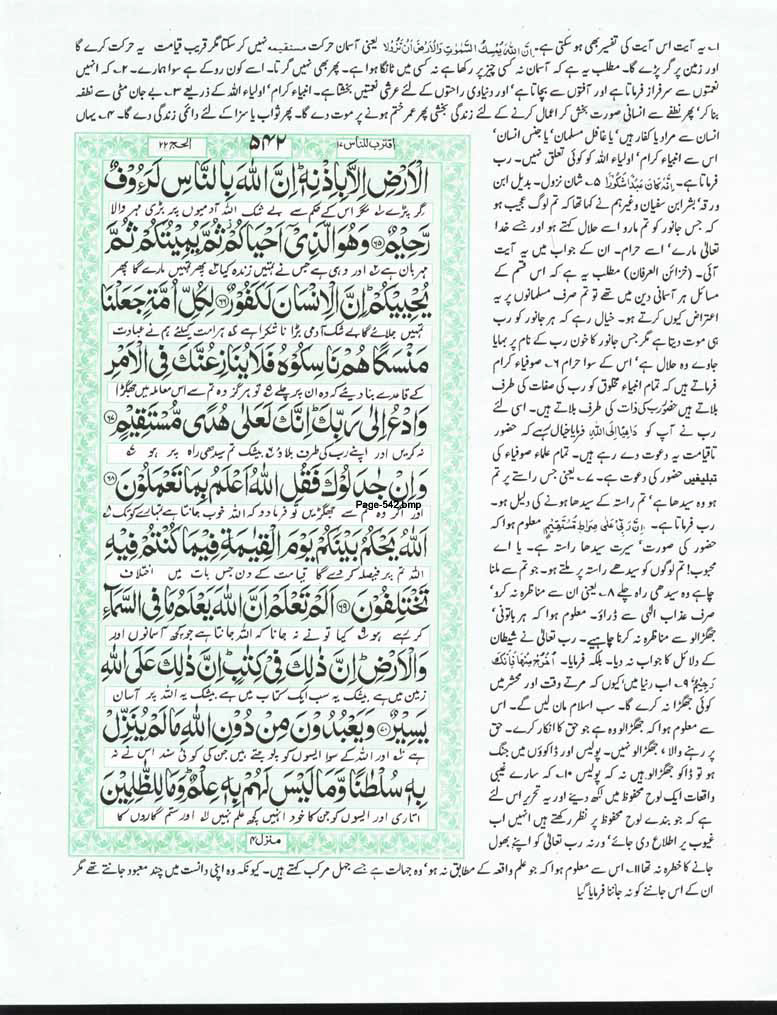 ۱؎ یہ آیت اس آیت کی تفسیر بھی ہو سکتی ہے۔ اِنَّ اللّٰهَ یُمْسِكُ السَّمٰوٰتِ وَالْاَرْضَ اَنْ تَزُوْلَا یعنی آسمان حرکت مستقیمہ نہیں کر سکتا مگر قریب قیامت یہ حرکت کرے گا
اور زمین پر گر پڑے گا۔ مطلب یہ ہے کہ آسمان نہ کسی چیز پر رکھا ہے نہ کسی میں ٹانگا ہوا ہے۔ پھر بھی نہیں گرتا۔ اسے کون روکے ہے سوا ہمارے۔ ۲؎ کہ انہیں
نعمتوں سے سرفراز فرماتا ہے اور آفتوں سے بچاتا ہے' اور دنیاوی راحتوں کے لئے عرشی نعمتیں بخشتا ہے۔ انبیاء کرام' اولیاء اللہ کے ذریعے ۳؎ بے جان مٹی سے نطفہ
بنا کر' پھر نطفے سے انسانی صورت بخش کر اعمال کرنے کے لئے زندگی بخشی پھر عمر ختم ہونے پر موت دے گا۔ پھر ثواب یا سزا کے لئے دائمی زندگی دے گا۔ ۴؎ یہاں
انسان سے مراد یا کفار ہیں' یا غافل مسلمان' یا جنس انسان'
اس سے انبیاء کرام' اولیاء اللہ کو کوئی تعلق نہیں۔ رب
فرماتا ہے۔ اِنَّهٗ كَانَ عَبْدًا شَكُوْرًا ۵؎ شان نزول۔ بدیل ابن
ورقہ' بشر ابن سفیان وغیرہم نے کہا تھا کہ تم لوگ عجیب ہو
کہ جس جانور کو تم مارو اسے حلال کہتے ہو اور جسے خدا
تعالیٰ مارے' اسے حرام۔ ان کے جواب میں یہ آیت
آئی۔ (خزائن العرفان) مطلب یہ ہے کہ اس قسم کے
مسائل ہر آسمانی دین میں تھے تو تم صرف مسلمانوں پر یہ
اعتراض کیوں کرتے ہو۔ خیال رہے کہ ہر جانور کو رب
ہی موت دیتا ہے مگر جس جانور کا خون رب کے نام پر بہایا
جاوے وہ حلال ہے' اس کے سوا حرام ۶؎ صوفیاء کرام
فرماتے ہیں کہ تمام انبیاء مخلوق کو رب کی صفات کی طرف
بلاتے ہیں حضور رب کی ذات کی طرف بلاتے ہیں۔ اسی لئے
رب نے آپ کو دَاعِیًا اِلَی اللّٰهِ فرمایا خیال رہے کہ حضور
تاقیامت یہ دعوت دے رہے ہیں۔ تمام علماء صوفیاء کی
تبلیغیں حضور کی دعوت ہے۔ ۷؎ یعنی جس راستے پر تم
ہو وہ سیدھا ہے' تم راستہ کے سیدھا ہونے کی دلیل ہو۔
رب فرماتا ہے۔ اِنَّ رَبِّیْ عَلٰی صِرَاطٍ مُّسْتَقِیْمٍ معلوم ہوا کہ
حضور کی صورت' سیرت سیدھا راستہ ہے۔ یا اے
محبوب! تم لوگوں کو سیدھے راستہ پر ملتے ہو۔ جو تم سے ملنا
چاہے وہ سیدھی راہ چلے ۸؎ یعنی ان سے مناظرہ نہ کرو'
صرف عذاب الٰہی سے ڈراؤ۔ معلوم ہوا کہ ہر باتونی'
جھگڑالو سے مناظرہ نہ کرنا چاہیے۔ رب تعالیٰ نے شیطان
کے دلائل کا جواب نہ دیا۔ بلکہ فرمایا۔ اُخْرُجْ مِنْهَا فَاِنَّكَ
رَجِیْمٌ ۹؎ اب دنیا میں' کیوں کہ مرتے وقت اور محشر میں
کوئی جھگڑا نہ کرے گا۔ سب اسلام مان لیں گے۔ اس
سے معلوم ہوا کہ جھگڑالو وہ ہے جو حق کا انکار کرے۔ حق
پر رہنے والا' جھگڑالو نہیں۔ پولیس اور ڈاکوؤں میں جنگ
ہو تو ڈاکو جھگڑالو ہیں نہ کہ پولیس ۱۰؎ کہ سارے غیبی
واقعات ایک لوح محفوظ میں لکھ دیئے اور یہ تحریر اس لئے
ہے کہ جو بندے لوح محفوظ پر نظر رکھتے ہیں انہیں اب
غیوب پر اطلاع دی جائے' ورنہ رب تعالیٰ کو اپنے بھول
جانے کا خطرہ نہ تھا ۱۱؎ اس سے معلوم ہوا کہ جو علم واقعہ کے مطابق نہ ہو' وہ جہالت ہے جسے جہل مرکب کہتے ہیں۔ کیونکہ وہ اپنی دانست میں چند معبود جانتے تھے مگر
ان کے اس جاننے کو نہ جاننا فرمایا گیا
اقترب للناس ۱۷ ۵۴۲ الحج ۲۲
الْاَرْضِ اِلَّا بِاِذْنِهٖ ؕ اِنَّ اللّٰهَ بِالنَّاسِ لَرَءُوْفٌ
گر پڑے ۱؎ مگر اس کے حکم سے بے شک اللہ آدمیوں پر بڑی مہر والا
رَّحِیْمٌ ﴿۶۵﴾ وَهُوَ الَّذِیْۤ اَحْیَاكُمْ ؗ ثُمَّ یُمِیْتُكُمْ ثُمَّ
مہربان ہے ۲؎ اور وہی ہے جس نے تمہیں زندہ کیا ۳؎ پھر تمہیں مارے گا پھر
یُحْیِیْكُمْ ؕ اِنَّ الْاِنْسَانَ لَكَفُوْرٌ ﴿۶۶﴾ لِكُلِّ اُمَّةٍ جَعَلْنَا
تمہیں جلائے گا بے شک آدمی بڑا ناشکرا ہے ۴؎ ہر امت کیلئے ہم نے عبادت
مَنْسَكًا هُمْ نَاسِكُوْهُ فَلَا یُنَازِعُنَّكَ فِی الْاَمْرِ
کے قاعدے بنا دیئے کہ وہ ان پر چلے ۵؎ تو ہر گز وہ تم سے اس معاملہ میں جھگڑا
وَادْعُ اِلٰی رَبِّكَ ؕ اِنَّكَ لَعَلٰی هُدًی مُّسْتَقِیْمٍ ﴿۶۷﴾
نہ کریں اور اپنے رب کی طرف بلاؤ ۶؎ بیشک تم سیدھی راہ پر ہو ۷؎
وَاِنْ جٰدَلُوْكَ فَقُلِ اللّٰهُ اَعْلَمُ بِمَا تَعْمَلُوْنَ ﴿۶۸﴾
Page-542.bmp
اور اگر وہ تم سے جھگڑیں تو فرما دو کہ اللہ خوب جانتا ہے تمہارے کوتک ۸؎
اَللّٰهُ یَحْكُمُ بَیْنَكُمْ یَوْمَ الْقِیٰمَةِ فِیْمَا كُنْتُمْ فِیْهِ
اللہ تم پر فیصلہ کر دے گا قیامت کے دن جس بات میں اختلاف
تَخْتَلِفُوْنَ ﴿۶۹﴾ اَلَمْ تَعْلَمْ اَنَّ اللّٰهَ یَعْلَمُ مَا فِی السَّمَآءِ
کر رہے ہو ۹؎ کیا تو نے نہ جانا کہ اللہ جانتا ہے جو کچھ آسمانوں اور
وَالْاَرْضِ ؕ اِنَّ ذٰلِكَ فِیْ كِتٰبٍ ؕ اِنَّ ذٰلِكَ عَلَی اللّٰهِ
زمین میں ہے بیشک یہ سب ایک کتاب میں ہے بیشک یہ اللہ پر آسان
یَسِیْرٌ ﴿۷۰﴾ وَیَعْبُدُوْنَ مِنْ دُوْنِ اللّٰهِ مَا لَمْ یُنَزِّلْ
ہے ۱۰؎ اور اللہ کے سوا ایسوں کو پوجتے ہیں جن کی کوئی سند اس نے نہ
بِهٖ سُلْطٰنًا وَّمَا لَیْسَ لَهُمْ بِهٖ عِلْمٌ ؕ وَمَا لِلظّٰلِمِیْنَ
اتاری اور ایسوں کو جن کا خود انہیں کچھ علم نہیں ۱۱؎ اور ستم گاروں کا
منزل ۴